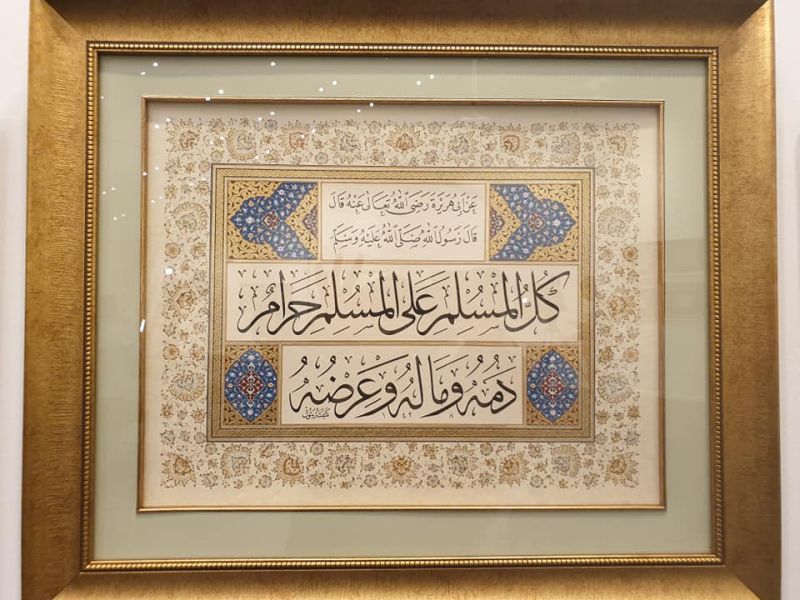 عَنْ أَبِي هُرَيْرَةَ رَضِيَ اللهُ تَعَالَى عَنْهُ قَالَ
قَالَ رَسُولُ اللهِ صَلَّى اللهُ عَلَيْهِ وَسَلَّمَ
كُلُّ الْمُسْلِمِ عَلَى الْمُسْلِمِ حَرَامٌ
دَمُهُ وَمَالُهُ وَعِرْضُهُ